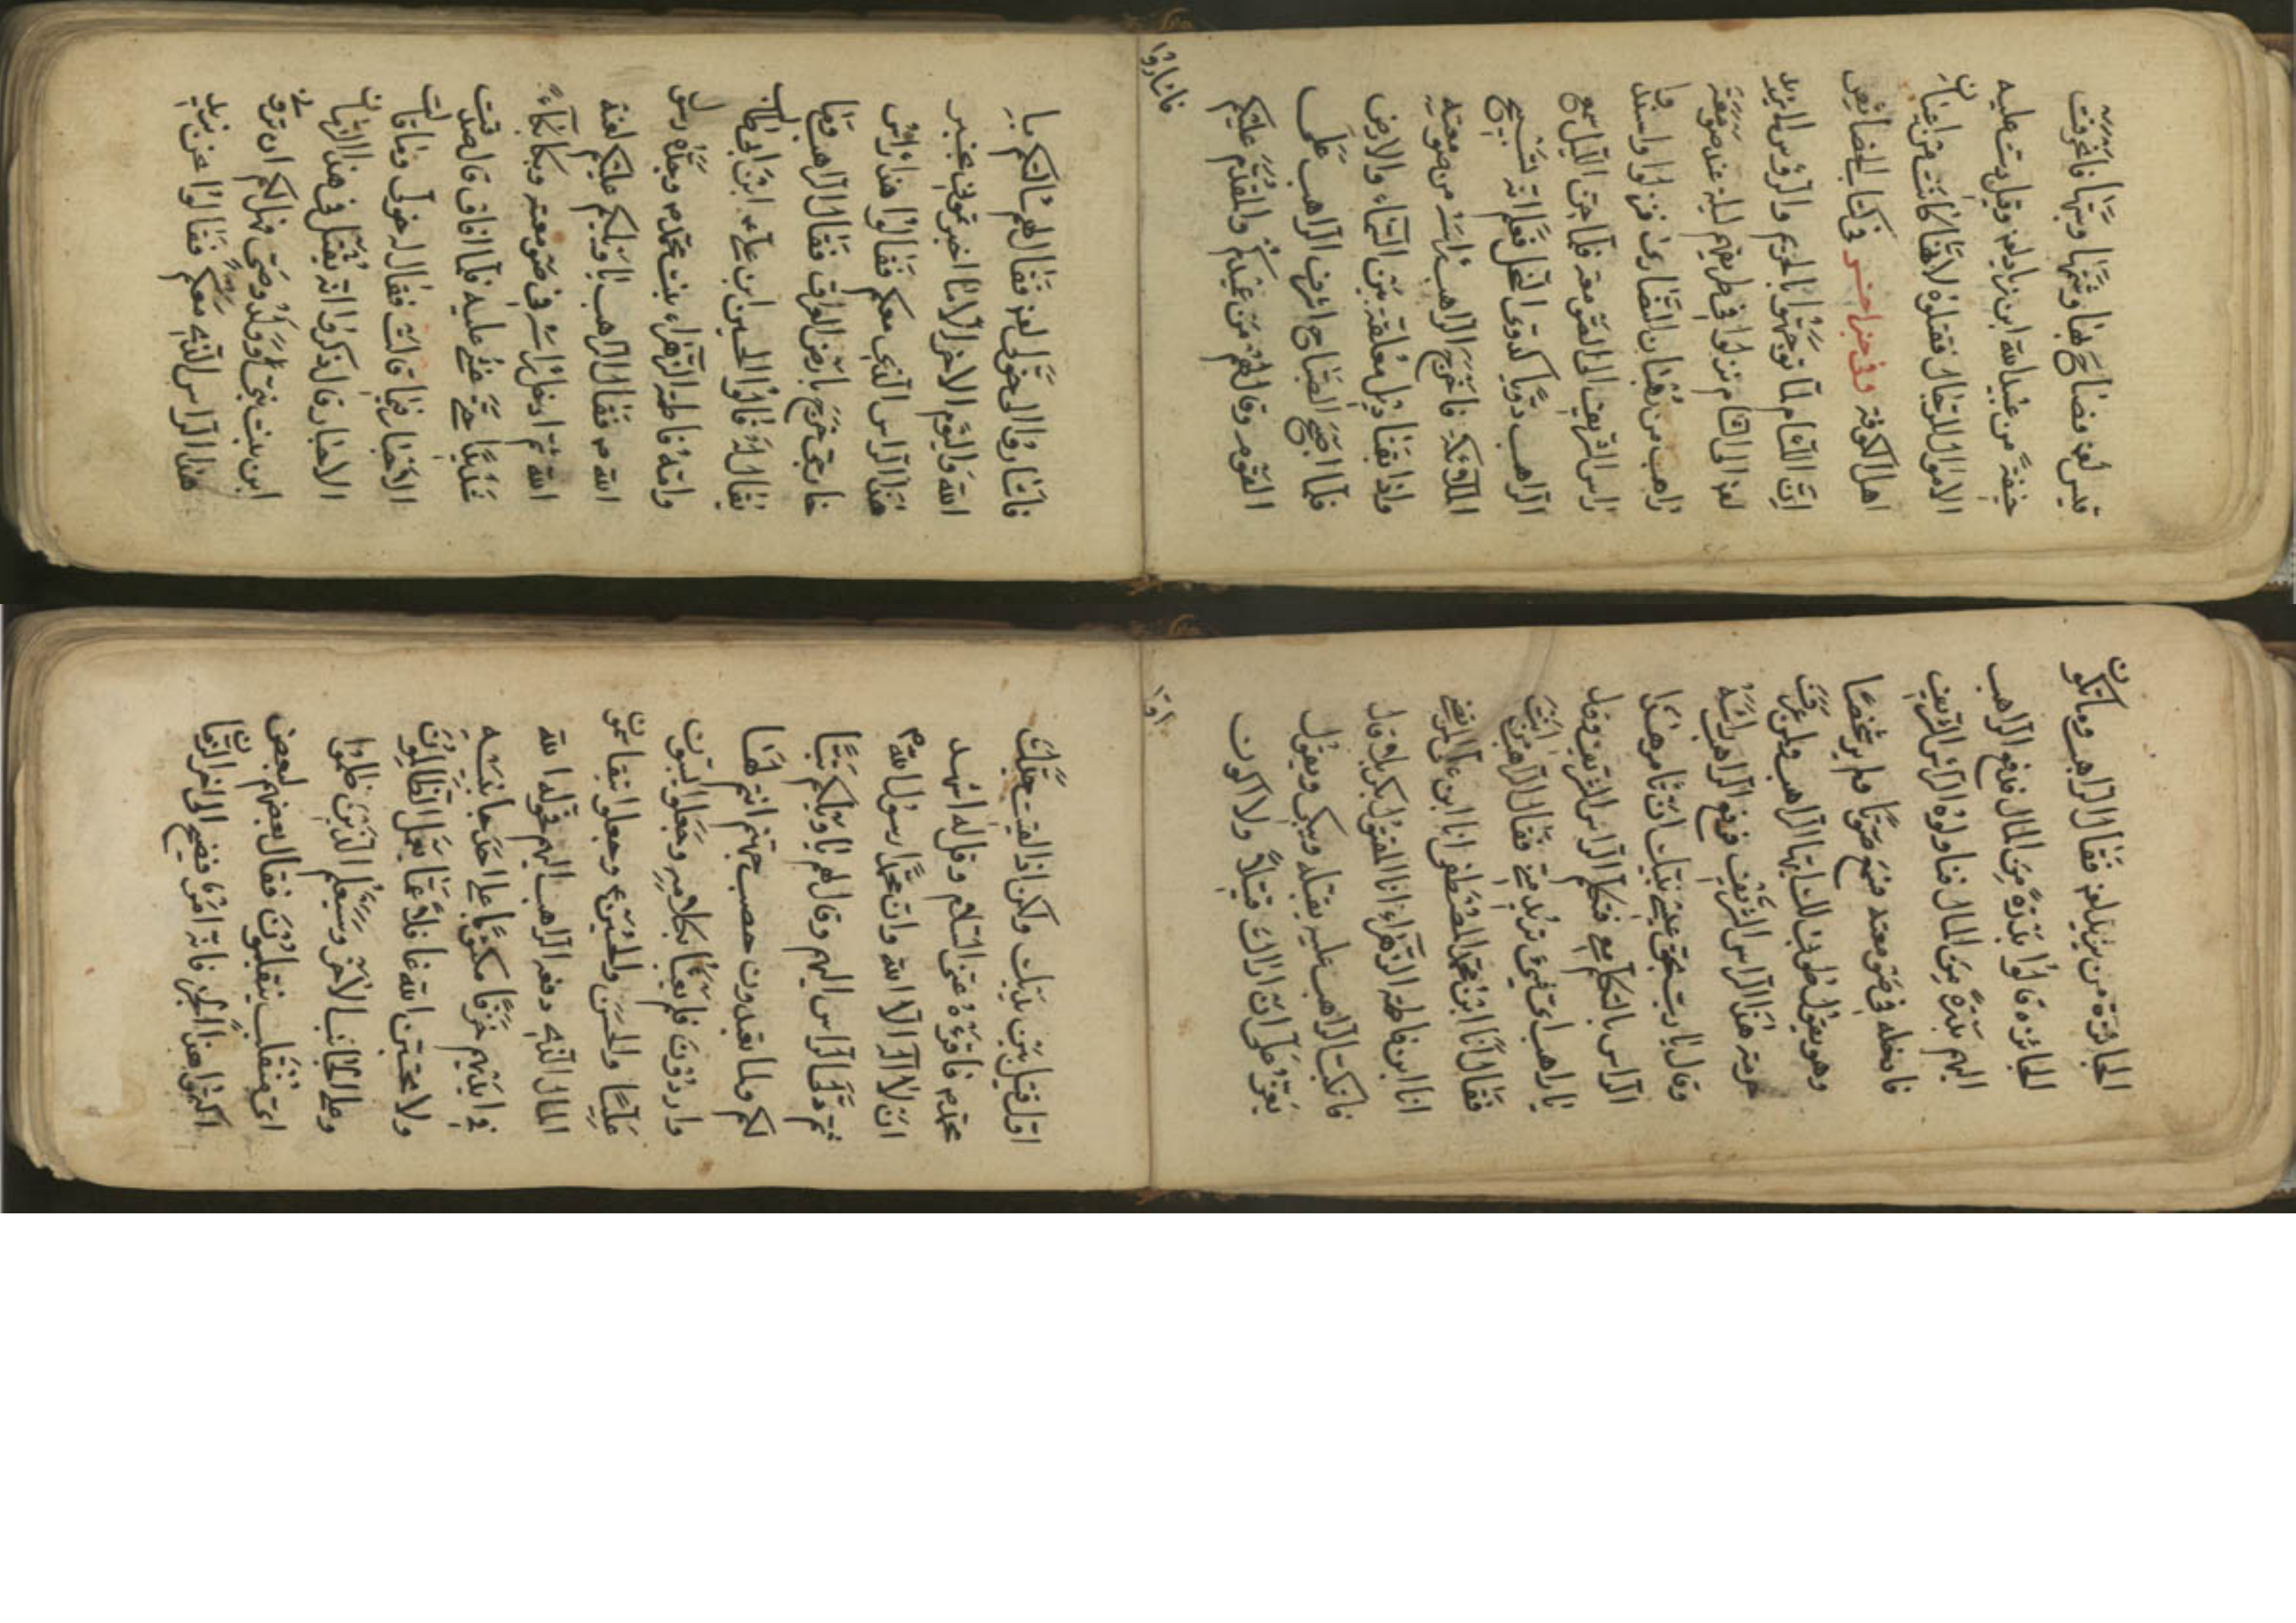 قيس لعنه فصاح بها وشتمها وسبها فاخرقت
خيفة من عبيد الله ابن زياد لعنه وقيل رشت عليه
الاموال للرجال فقتلوه لانها كانت من اعيان
اهل الكوفة وفي خبر اخر في كتاب الخصائص
ان اللئام لما توجهوا بالحريم والرؤس الى يزيد
لعنه الى الشام نزلوا في طريقهم ليلة عند صومعة
راهب من رهبان النصارى فنزلوا واسندوا
راس الشريف الى الصومعة فلما جن الليل سمع
الراهب دويا كدوي النحل فعلم انه تسبيح
الملائكة فاخرج الراهب راسه من صومعته
واذا بقناديل معلقة بين السماء والارض
فلما اصبح الصباح اشرف الراهب على
القوم وقال لهم من عندكم والمقدم عليكم
فاشاروا
فاشاروا الى خولى لعنه فقال لهم سالتكم با
الله واليوم الاخر الا ما اخبرتموني بخبر
هذا الراس الذي معكم فقالوا هذا راس
خارجي خرج بارض العراق فقال الراهب وما
يقال له قالوا الحسين ابن علي ابن ابي طالب
وامه فاطمة الزهراء بنت محمد وجده رسول
الله ص فقال الراهب يا ويلكم عليكم لعنة
الله ثم ادخل راسه في صومعته وبكا بكاء
شديدا حتى غشي عليه فلما افاق قال صدقت
الاخبار فيما قالت فقال له خولى وما قالت
الاحبار قال ذكروا انه يقتل في هذا الزمان
ابن بنت نبي او ولد وصي فهل لكم ان تروني
هذا الراس الذي معكم فقالوا عن يزيد
الجائزة من يزيد لعنه فقال الراهب وما تكون
الجائزه قالوا بدرة من المال فدفع الراهب
اليهم بدرة من المال فناولوه الراس الشريف
فادخله في صومعته فسمع صوتا ولم ير شخصا
وهو يقول طوبى لك ايها الراهب ولمن عرف
حرمة هذا الراس الشريف فرفع الراهب راسه
وقال يا رب بحق عيسى نبيك ان تامر هذا
الراس بالتكلم معي فتكلم الراس الشريف وقال
يا راهب اي شيء تريد مني فقال الراهب من انت
فقال انا ابن محمد المصطفى انا ابن علي المرتضى
انا ابن فاطمة الزهراء انا المقتول بكربلا قال
فانكب الراهب عليه يقبله ويبكي ويقول
يعز علي ان اراك قتيلا ولا اكون
اول
اول قتيل بين يديك ولكن اذا لقيت جدك
محمد ص فاقرءه عني السلام وقل له اشهد
ان لا اله الا الله وان محمدا رسول الله ص
ثم رد الراس اليهم وقال لهم يا ويلكم تبا
لكم ولما تعبدون حصب جهنم انتم لها
واردون فلم يعبأوا بكلامه وجعلوا يسبون
عليا والحسن والحسين ع وجعلوا يتقاسمون
المال الذي دفعه الراهب اليهم فوالله
في ايديهم خزفا مكتوبا على احد جانبيه
ولا تحسبن الله غافلا عما يعمل الظالمون
وعلى الجانب الاخر وسيعلم الذين ظلموا
اي منقلب ينقلبون فقال بعضهم لبعض
اكتموا هذا الخبر فانه امر فضيح الى اخر الزمان